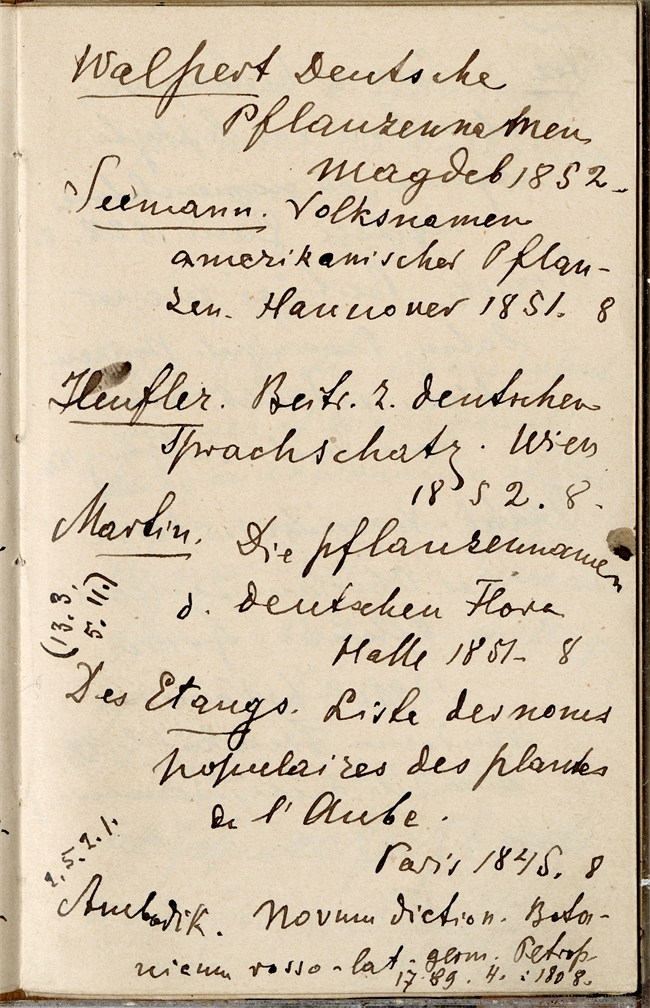 Walpert Deutsche
Pflanzennamen
Magdeb 1852.
Seemann. Volksnamen
amerikanischer Pflan-
zen. Hannover 1851. 8
Heufler. Beitr. z. deutschen
Sprachschatz. Wien
1852. 8.
Martin. Die pflanzennamen
d. deutschen Flora
(13. 3.
5. 11.)
Halle 1851. 8
Des Etangs. Liste des noms
populaires des plantes
de l'Aube.
Paris 1845. 8
2. 5. 2. 1.
Ambodik. Novum diction. Bota-
nicum rosso-lat. germ. Petrop
1789. 4. : 1808.